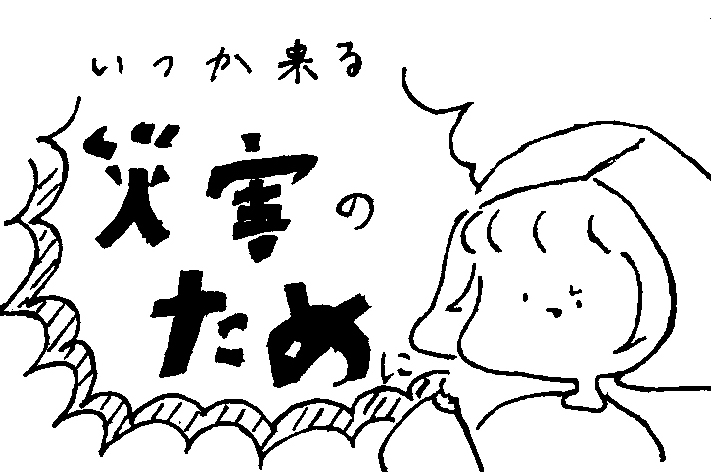 いつか来る
災害の
ために